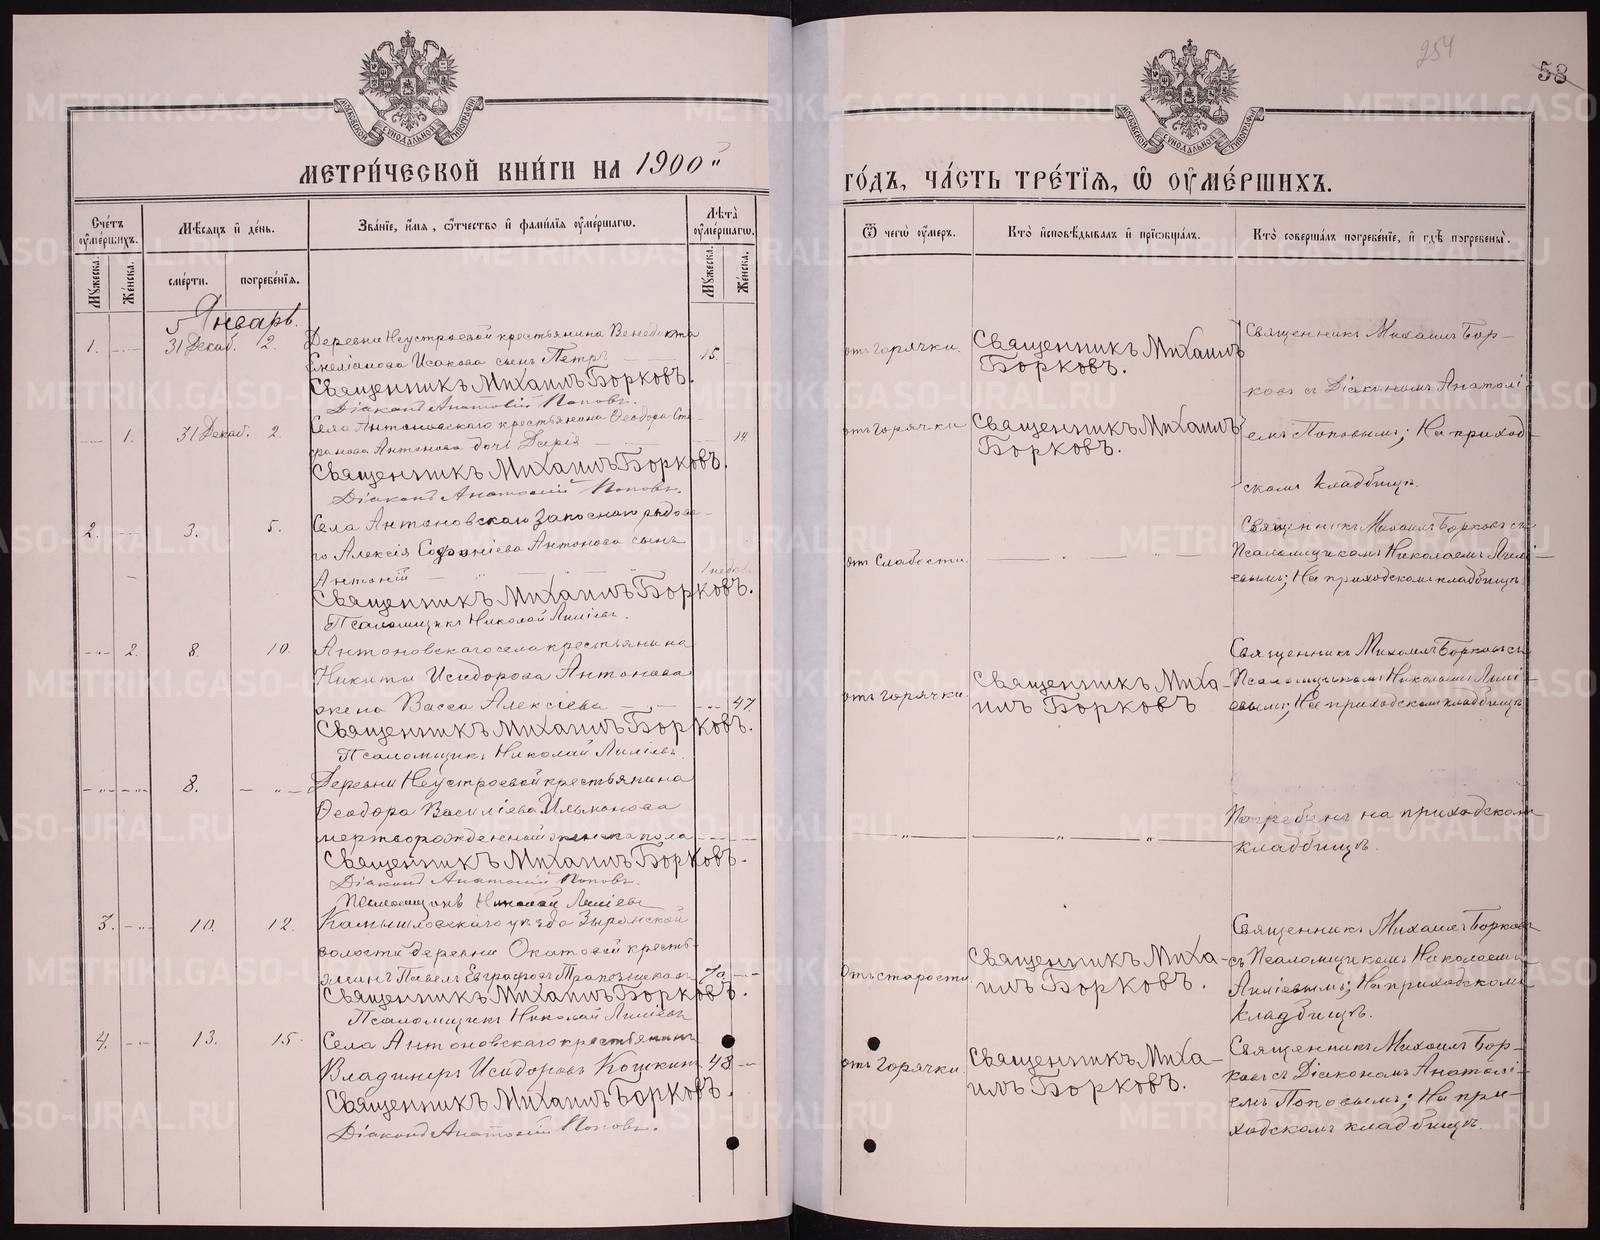 254
58
МОСКОВСКОЙ СѴНОДАЛЬНОЙ ТИПОГРАФІИ
МОСКОВСКОЙ СѴНОДАЛЬНОЙ ТИПОГРАФІИ
МЕТРИ́ЧЕСКОЙ КНИ́ГИ НА 1900"
ГО́ДЪ, ЧА́СТЬ ТРЕ́ТІѦ, Ѡ҆ ОУ҆МЕ́РШИХЪ.
Счéтъ оу҆мéршихъ.
Мѣ́сяцъ и҆ дéнь.
Звáнїе, и҆́мѧ, ѻ҆́тчество и҆ фамилїѧ оу҆мéршагѡ.
Лѣ́та оу҆мéршагѡ.
Мꙋ́жеска.
Же́нска.
смéрти.
погребéнїѧ.
Мꙋ́жеска.
Же́нска.
Ѿ чегѡ̀ оу҆́меръ.
Ктò и҆сповѣ́дывалъ и҆ прїѡбщáлъ.
Ктò совершáлъ погребéнїе, и҆ гдѣ̀ погребены̀.
Январь.
1. 31 Декаб. 2. Деревни Неустроевой крестьянина Венедикта
Емеліанова Исакова сынъ Петръ 15.
Священникъ Михаилъ Борковъ.
Діаконъ Анатолій Поповъ.
отъ горячки.
Священникъ Михаилъ
Борковъ.
Священникъ Михаилъ Бор-
ковъ съ Діакономъ Анатолі-
емъ Поповымъ; На приход-
скомъ кладбищѣ.
1. 31 Декаб. 2. Села Антоновскаго крестьянина Ѳеодора Сте-
фанова Антонова дочь Дарія 14
Священникъ Михаилъ Борковъ.
Діаконъ Анатолій Поповъ.
отъ горячки
Священникъ Михаилъ
Борковъ.
2. 3. 5. Села Антоновскаго запаснаго рядова-
го Алексія Софоніева Антонова сынъ
Антоній
Священникъ Михаилъ Борковъ.
Псаломщикъ Николай Лиліевъ.
отъ Слабости.
Священникъ Михаилъ Борковъ съ
Псаломщикомъ Николаемъ Лилі-
евымъ; На приходскомъ кладбищѣ.
2. 8. 10. Антоновскаго села крестьянина
Никиты Исидорова Антонова
жена Васса Алексіева 47
Священникъ Михаилъ Борковъ.
Псаломщикъ Николай Лиліевъ
отъ горячки.
Священникъ Миха-
илъ Борковъ
Священникъ Михаилъ Борковъ съ
Псаломщикомъ Николаемъ Лилі-
евымъ; На приходскомъ кладбищѣ
8. Деревни Неустроевой крестьянина
Ѳеодора Василіева
мертворожденный женска пола
Священникъ Михаилъ Борковъ.
Діаконъ Анатолій Поповъ.
Псаломщикъ Николай Лиліевъ
Погребенъ на приходскомъ
кладбищѣ.
3. 10. 12. Камышловскаго уѣзда Зырянской
волости деревни Окатовой кресть-
янинъ Павелъ Евграфовъ 70
Священникъ Михаилъ Борковъ.
Псаломщикъ Николай Лиліевъ
Отъ старости
Священникъ Миха-
илъ Борковъ.
Священникъ Михаилъ Борковъ
съ Псаломщикомъ Николаемъ
Лиліевымъ; На приходскомъ
кладбищѣ.
4. 13. 15. Села Антоновскаго крестьянинъ
Владимиръ Исидоровъ Кошкинъ 48
Священникъ Михаилъ Борковъ.
Діаконъ Анатолій Поповъ.
отъ Горячки.
Священникъ Миха-
илъ Борковъ.
Священникъ Михаилъ Бор-
ковъ съ Діакономъ Анатолі-
емъ Поповымъ; На при-
ходскомъ кладбищѣ.
METRIKI.GASO-URAL.RU